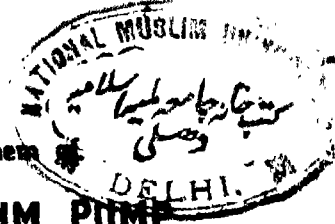 NATIONAL MUSLIM UN
کتب خانہ جامعہ ملیہ اسلامیہ
دہلی
DELHI.
PUMP